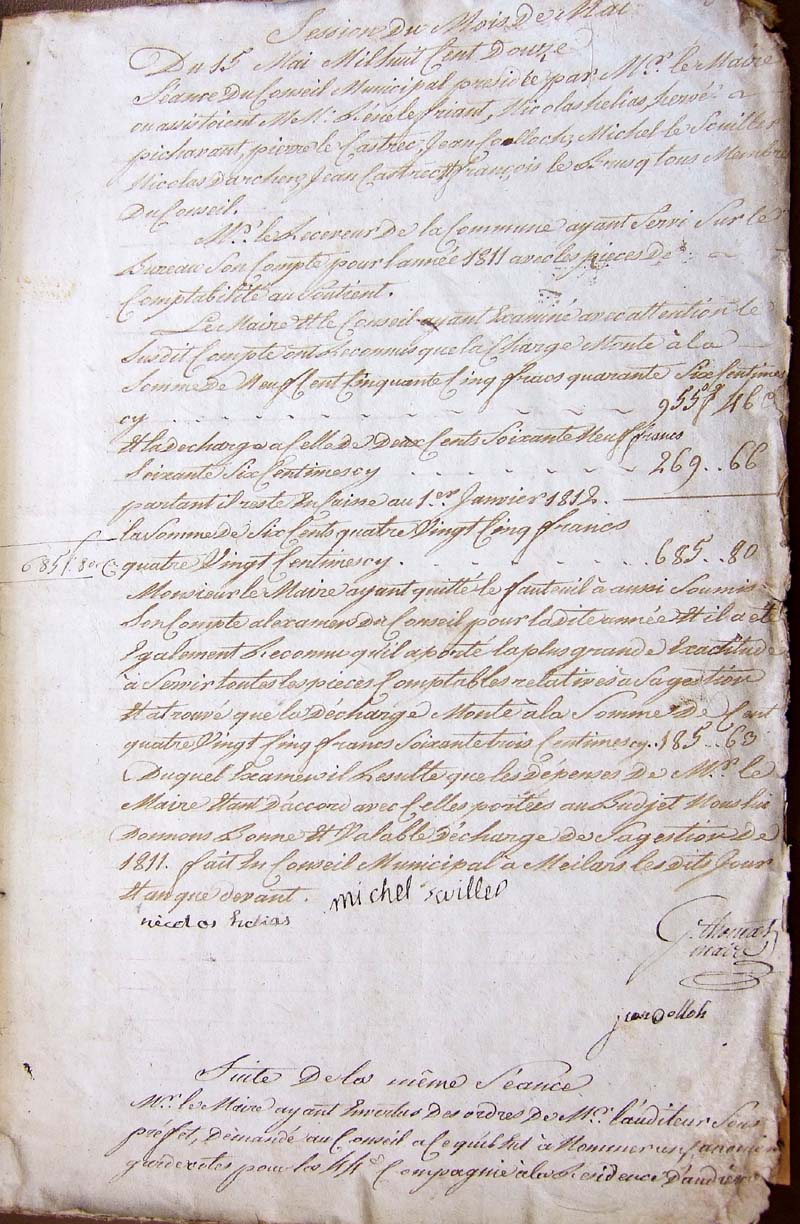 Session Du Mois De Mai
Du 15 Mai Mil huit Cent Douze
Séance Du Conseil Municipal presidée par Mr. le Maire
ou assistoient M.M. Réné le friant, Nicolas helias, hervé
pichavant, pierre le Castrec, Jean Colloch, Michel le Souiller
Nicolas Darchen, Jean Castrec & françois le Brusq tous Membres
Du Conseil.
Mr. le Receveur De la Commune ayant Servi Sur le
Bureau Son Compte pour l'année 1811 avec les pieces De
Comptabilité au Soutient.
Le Maire & le Conseil ayant Examiné avec attention le
Susdit Compte ont Reconnus que la Charge Monte à la
Somme De Neuf Cent Cinquante Cinq francs quarante Six Centimes
cy 955f 46c
& la decharge a Celle De Deux Cents Soixante Neuf francs
Soixante Six Centimes cy 269..66
partant il reste En Caisse au 1er Janvier 1812.
la Somme De Six Cents quatre Vingt Cinq francs
685f. 80c quatre Vingt Centimes cy 685..80
Monsieur le Maire ayant quitté le fauteuil à aussi Soumis
Son Compte a lexamen Du Conseil pour la dite année Et il a été
Egalement Reconnu qu'il a porté la plus grande Exactitude
à Servir toutes les pièces Comptables relatives à Sa gestion
& a trouvé que la Décharge Monte à la Somme De Cent
quatre Vingt Cinq francs Soixante trois Centimes cy..185..63
Duquel Examen il Resulte que les dépenses De Mr. le
Maire Etant d'accord avec Celles portées au Budjet Nous lui
Donnons Bonne & Valable Décharge De Sa gestion De
1811. fait En Conseil Municipal à Meilars les dits Jour
& an que devant.
nicolas helias michel souiller
thomas
maire
jean Colloh
Suite De la même Séance
Mr. le Maire ayant En vertu Des ordres De Mr. l'auditeur Sous
préfet, Demandé au Conseil a Ce qu'il Eut à Nommer
gardecotes pour la 44e Compagnie a la Résidence D'audierne